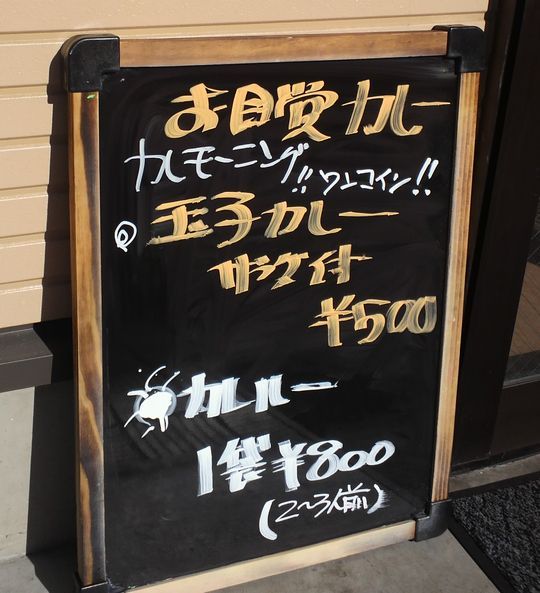 お目覚カレー
カルモーニング!! ワンコイン!!
◎玉子カレー
サラダ付
¥500
カレルー
1袋¥800
(2〜3人前)